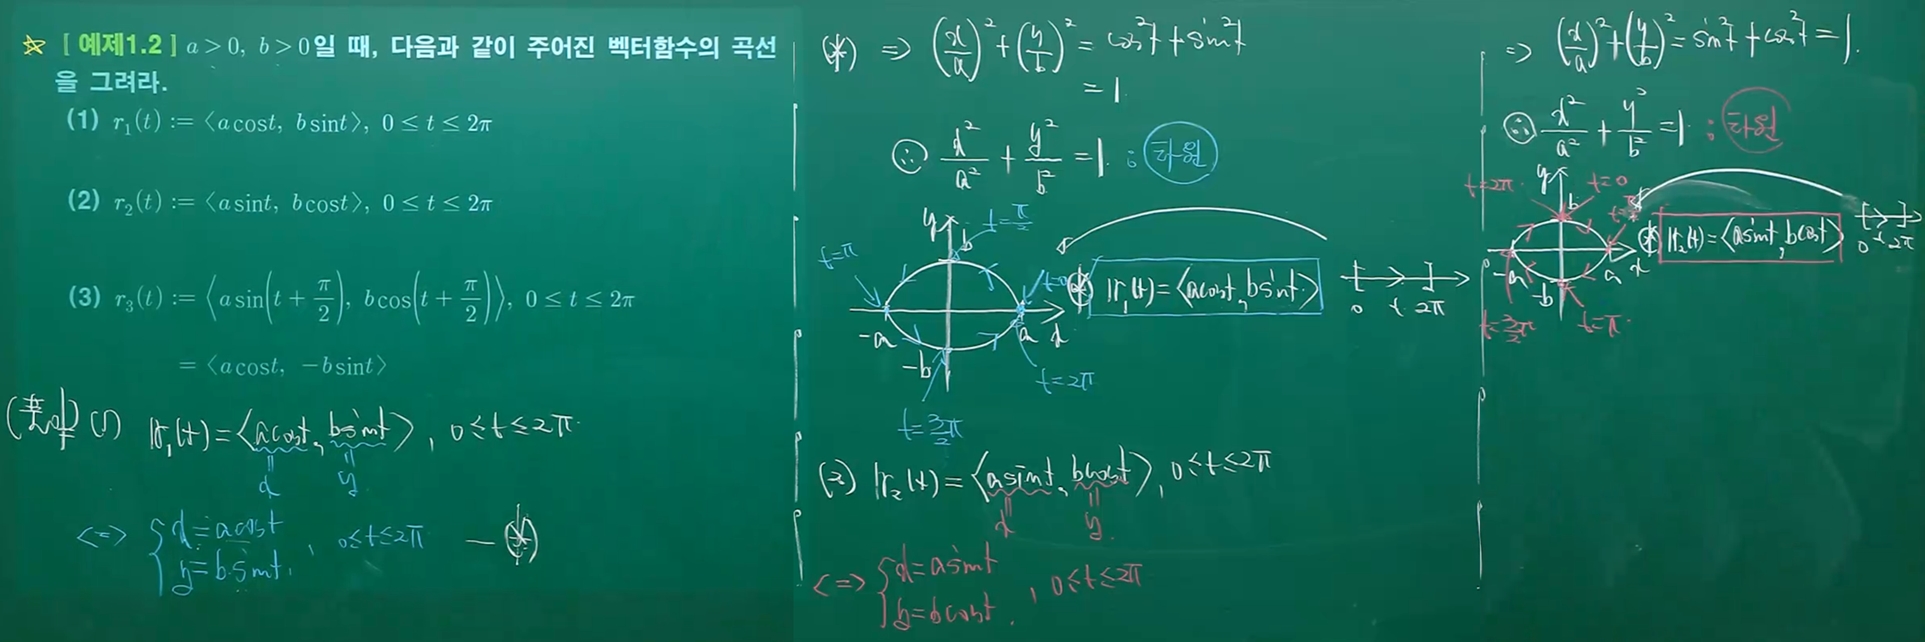 ☆ [예제1.2] a > 0, b > 0일 때, 다음과 같이 주어진 벡터함수의 곡선
을 그려라.
(1) r₁(t) := ⟨a cost, b sint⟩, 0 ≤ t ≤ 2π
(2) r₂(t) := ⟨a sint, b cost⟩, 0 ≤ t ≤ 2π
(3) r₃(t) := ⟨a sin(t + π/2), b cos(t + π/2)⟩, 0 ≤ t ≤ 2π
= ⟨a cost, −b sint⟩
(풀이) (1) r₁(t) = ⟨a cost, b sint⟩, 0 ≤ t ≤ 2π
∥ ∥
x y
<=> { x = a cost
y = b sint , 0 ≤ t ≤ 2π — (*)
(*) => (x/a)² + (y/b)² = cos²t + sin²t
= 1
∴ x²/a² + y²/b² = 1 : 타원
y
b
t = π/2
t = π
t = 0
−a
a
x
−b
t = 2π
t = 3/2 π
(*) r₁(t) = ⟨a cost, b sint⟩
0 t 2π
(2) r₂(t) = ⟨a sint, b cost⟩, 0 ≤ t ≤ 2π
∥ ∥
x y
<=> { x = a sint
y = b cost , 0 ≤ t ≤ 2π
=> (x/a)² + (y/b)² = sin²t + cos²t = 1.
∴ x²/a² + y²/b² = 1 : 타원
t = 2π
y
b
t = 0
−a
a
x
−b
t = 3/2 π
t = π
(*) r₂(t) = ⟨a sint, b cost⟩
0 t 2π